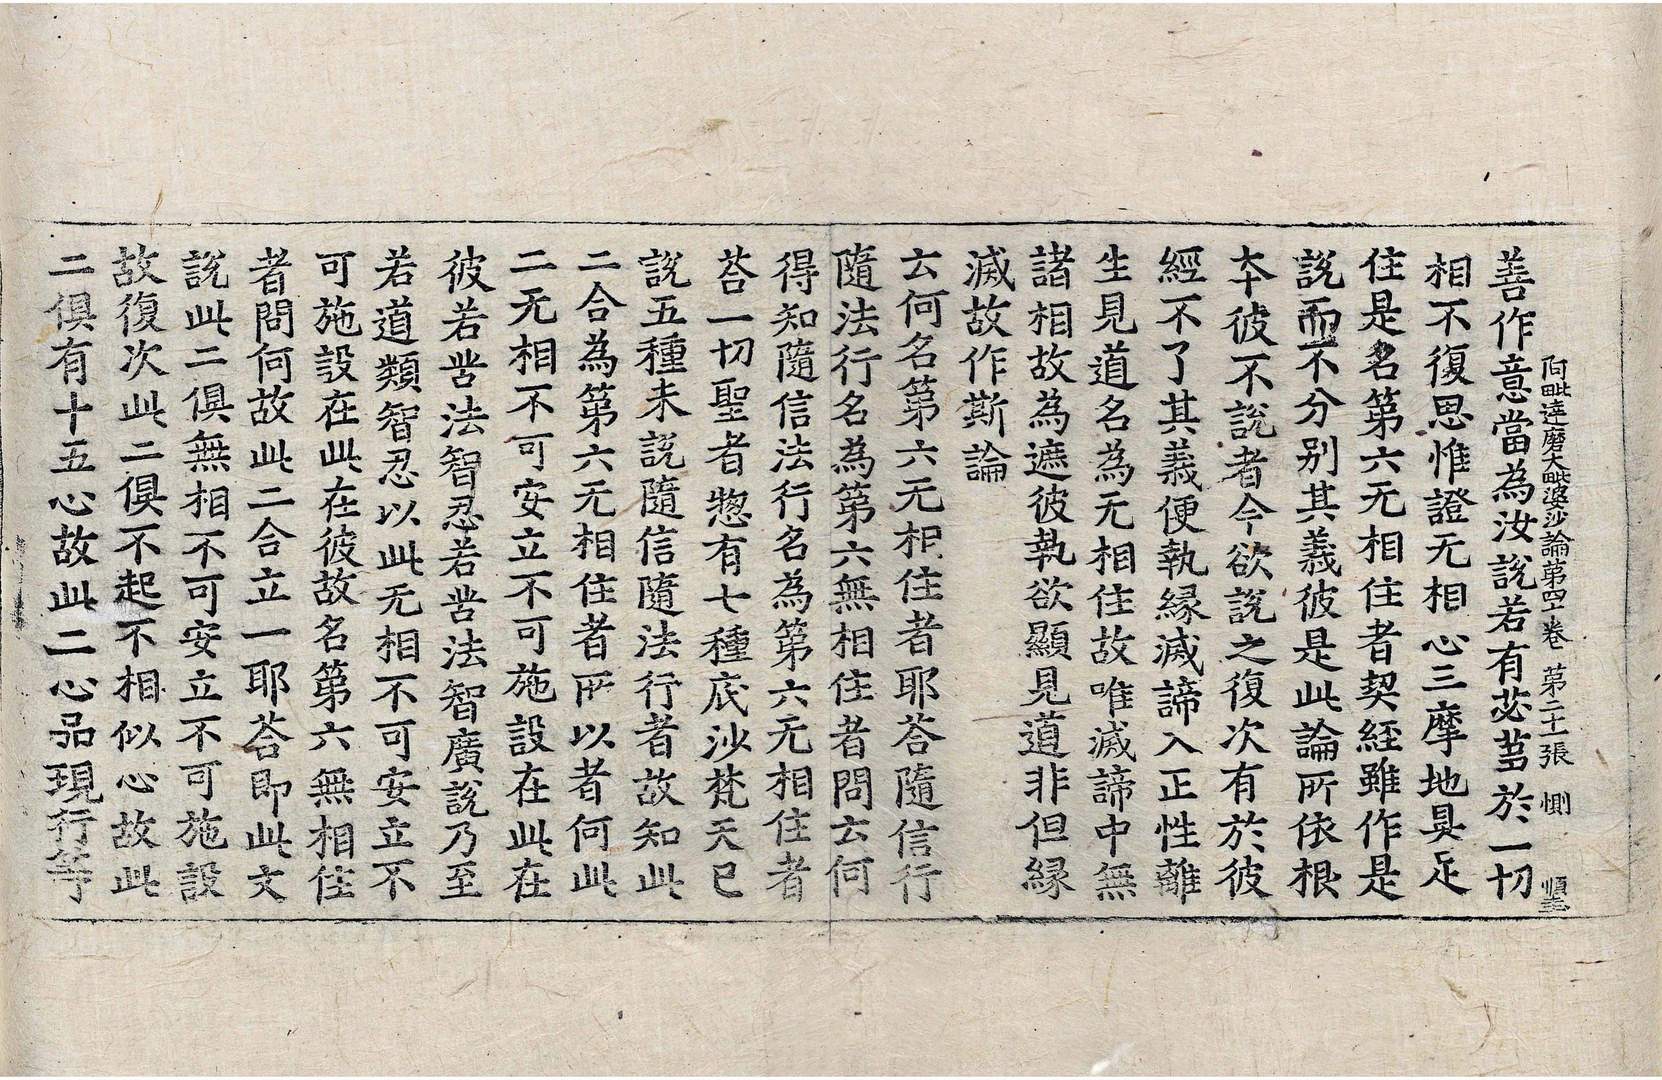 阿毗達磨大毗婆沙論第四十卷 第二十一張 惻
善作意當為汝說若有苾芻於一切
相不復思惟證无相心三摩地具足
住是名第六无相住者契經雖作是
說而不分别其義彼是此論所依根
本彼不說者今欲說之復次有於彼
經不了其義便執緣滅諦入正性離
生見道名為无相住故唯滅諦中無
諸相故為遮彼執欲顯見道非但緣
滅故作斯論
云何名第六无相住者耶荅隨信行
隨法行名為第六無相住者問云何
得知隨信法行名為第六无相住者
荅一切聖者惣有七種底沙梵天已
說五種未說隨信隨法行者故知此
二合為第六无相住者所以者何此
二无相不可安立不可施設在此在
彼若苦法智忍若苦法智廣說乃至
若道類智忍以此无相不可安立不
可施設在此在彼故名第六無相住
者問何故此二合立一耶荅即此文
說此二俱無相不可安立不可施設
故復次此二俱不起不相似心故此
二俱有十五心故此二心品現行等